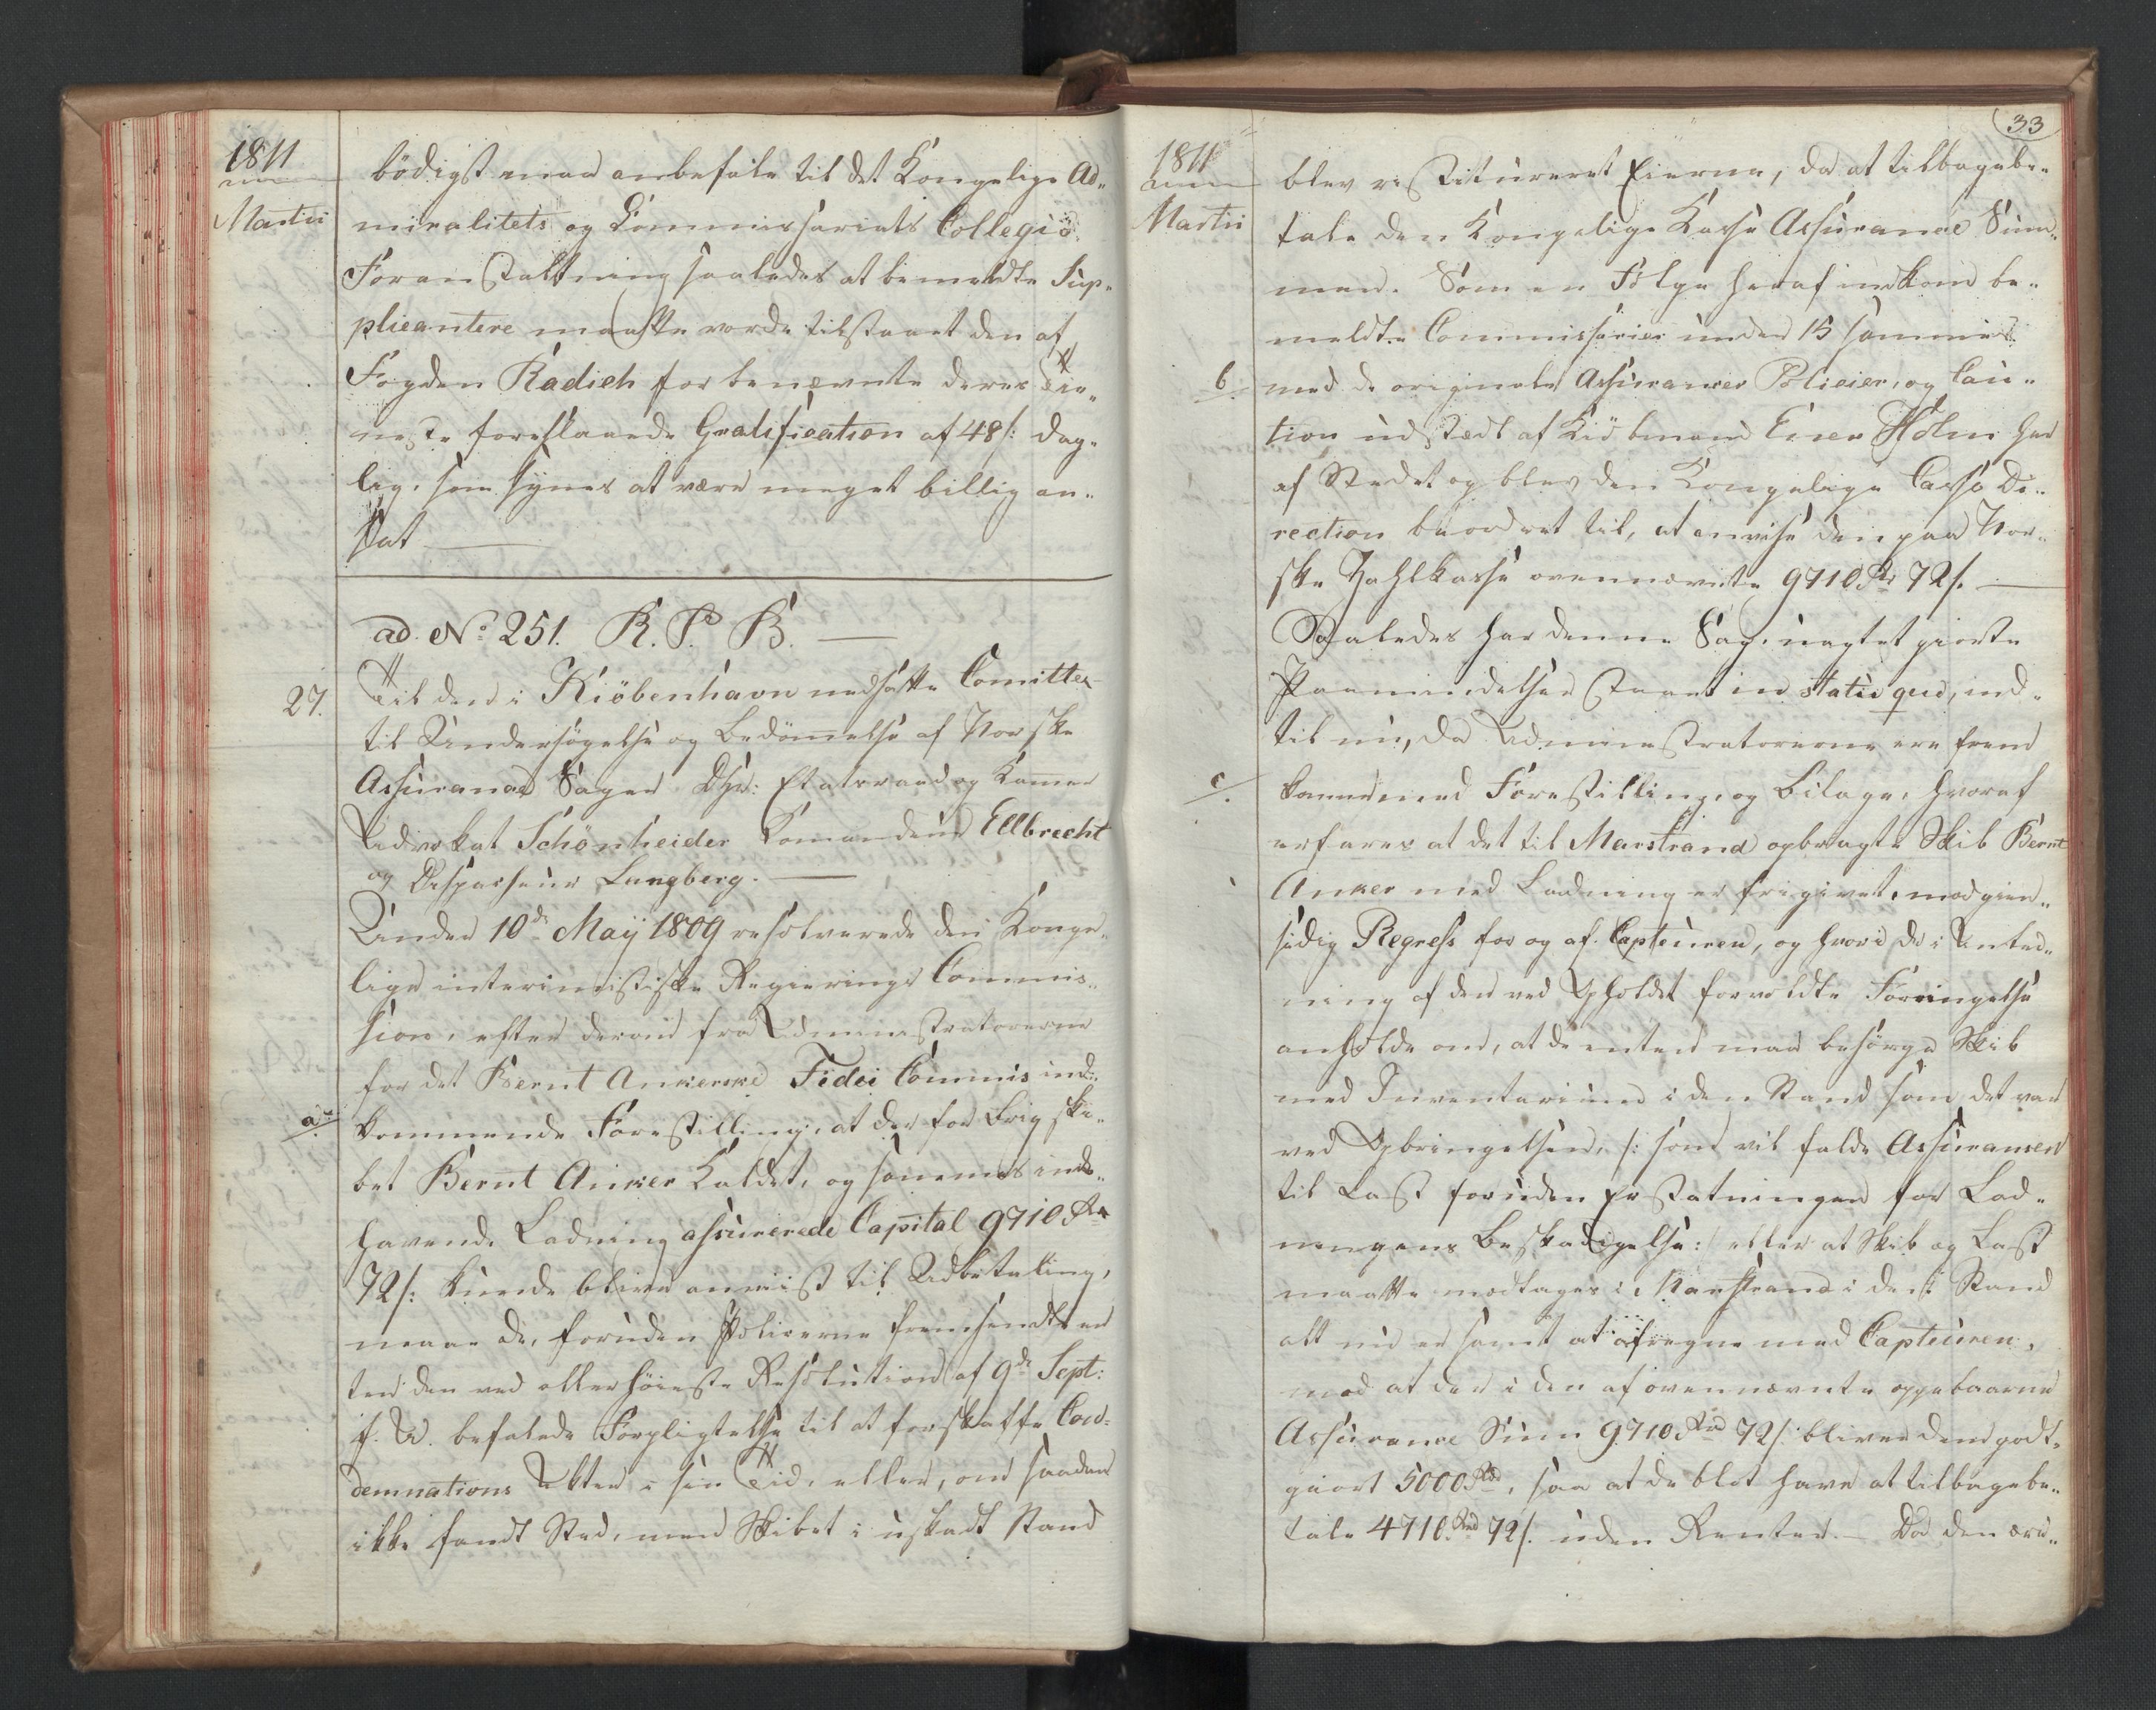 1811
Martii
bödigst maa anbefale til det Kongelige Ad„
miralitets og Commissariats Collegiö
Foranstaltning saaledes at bemeldte Sup„
plicantere maatte vorde tilstaaet den af
Fogden Radich for benævnte deres Tie„
neste foreslaaede Gratification af 48 s: dag„
lig, som synes at være meget billig an„
sat
ad. No. 251. K. P. B.
27.
Til den i Kiöbenhavn nedsatte Comittee
til Undersögelse og Bedömmelse af Norske
Assurance Sager DHr: Etatsraad og Kammer
Advokat Schönheider Comandeur Ellbrecht
og Dispascheur Langberg.
Under 10de Maÿ 1809 resolverede den Konge„
lige interimistiske Regierings Commis„
sion, efter derom fra Administratorerne
for det Bernt Ankerske Fidei Commis ind„
a.
kommende Forestilling, at der for Brig ski„
bet Bernt Anker kaldet, og sammes inde„
havende Ladning assurerede Capital 9710 Rd
72 s: kunde blive anviist til Udbetaling,
naar de, foruden Policerne fremsendte en
ten den ved allerhöieste Resolution af 9de Sept:
f. A. befalede Forpligtelse til at forskaffe Con„
demnations Akten i sin Tid, eller, om saadan
ikke fandt Sted, men Skibet i uskadt Stand
33
1811
Martii
blev restitureret Eierne, da at tilbagebe„
tale den Kongelige Kasse Assurance Sum„
men. Som en Fölge heraf indkom be„
meldte Commissarier under 15 sammes
b.
med de originale Assurance Policier, og Cau„
tion udstædt af Kiöbmand Einer Holm her
af Stedet og blev den Kongelige Casse Di„
rection beordret til, at anvise den paa Nor„
ske Zahlkasse ovennævnte 9710 Rd 72 s.
Saaledes har denne Sag, uagtet giorte
Paamindelser staaet in statu quo, ind„
til nu, da Administratorerne ere frem
c.
komne med Forestilling, og Bilage, hvoraf
erfares at det til Marstrand opbragte Skib Bernt
Anker med Ladning er frigivet, mod gien„
sidig Regress for og af Capteuren, og hvori de i Anled„
ning af den ved Opholdet forvoldte Foringelse
anholde om, at de enten maa besörge Skib
med Inventarium i den Stand som det var
ved Opbringelsen, /: som vil falde Assurancen
til Last foruden Erstatningen for Lad„
ningens Beskadigelse :/ eller at Skib og Last
maatte modtages i Marstrand i den Stand
alt nu er samt at afregne med Capteuren,
mod at der i den af ovennævnte oppebaarne
Assurance Sum 9710 Rd 72 s: bliver dem godt„
giort 5000 Rd, saa at de blot have at tilbagebe„
tale 4710 Rd 72 s. uden Renter. Da den